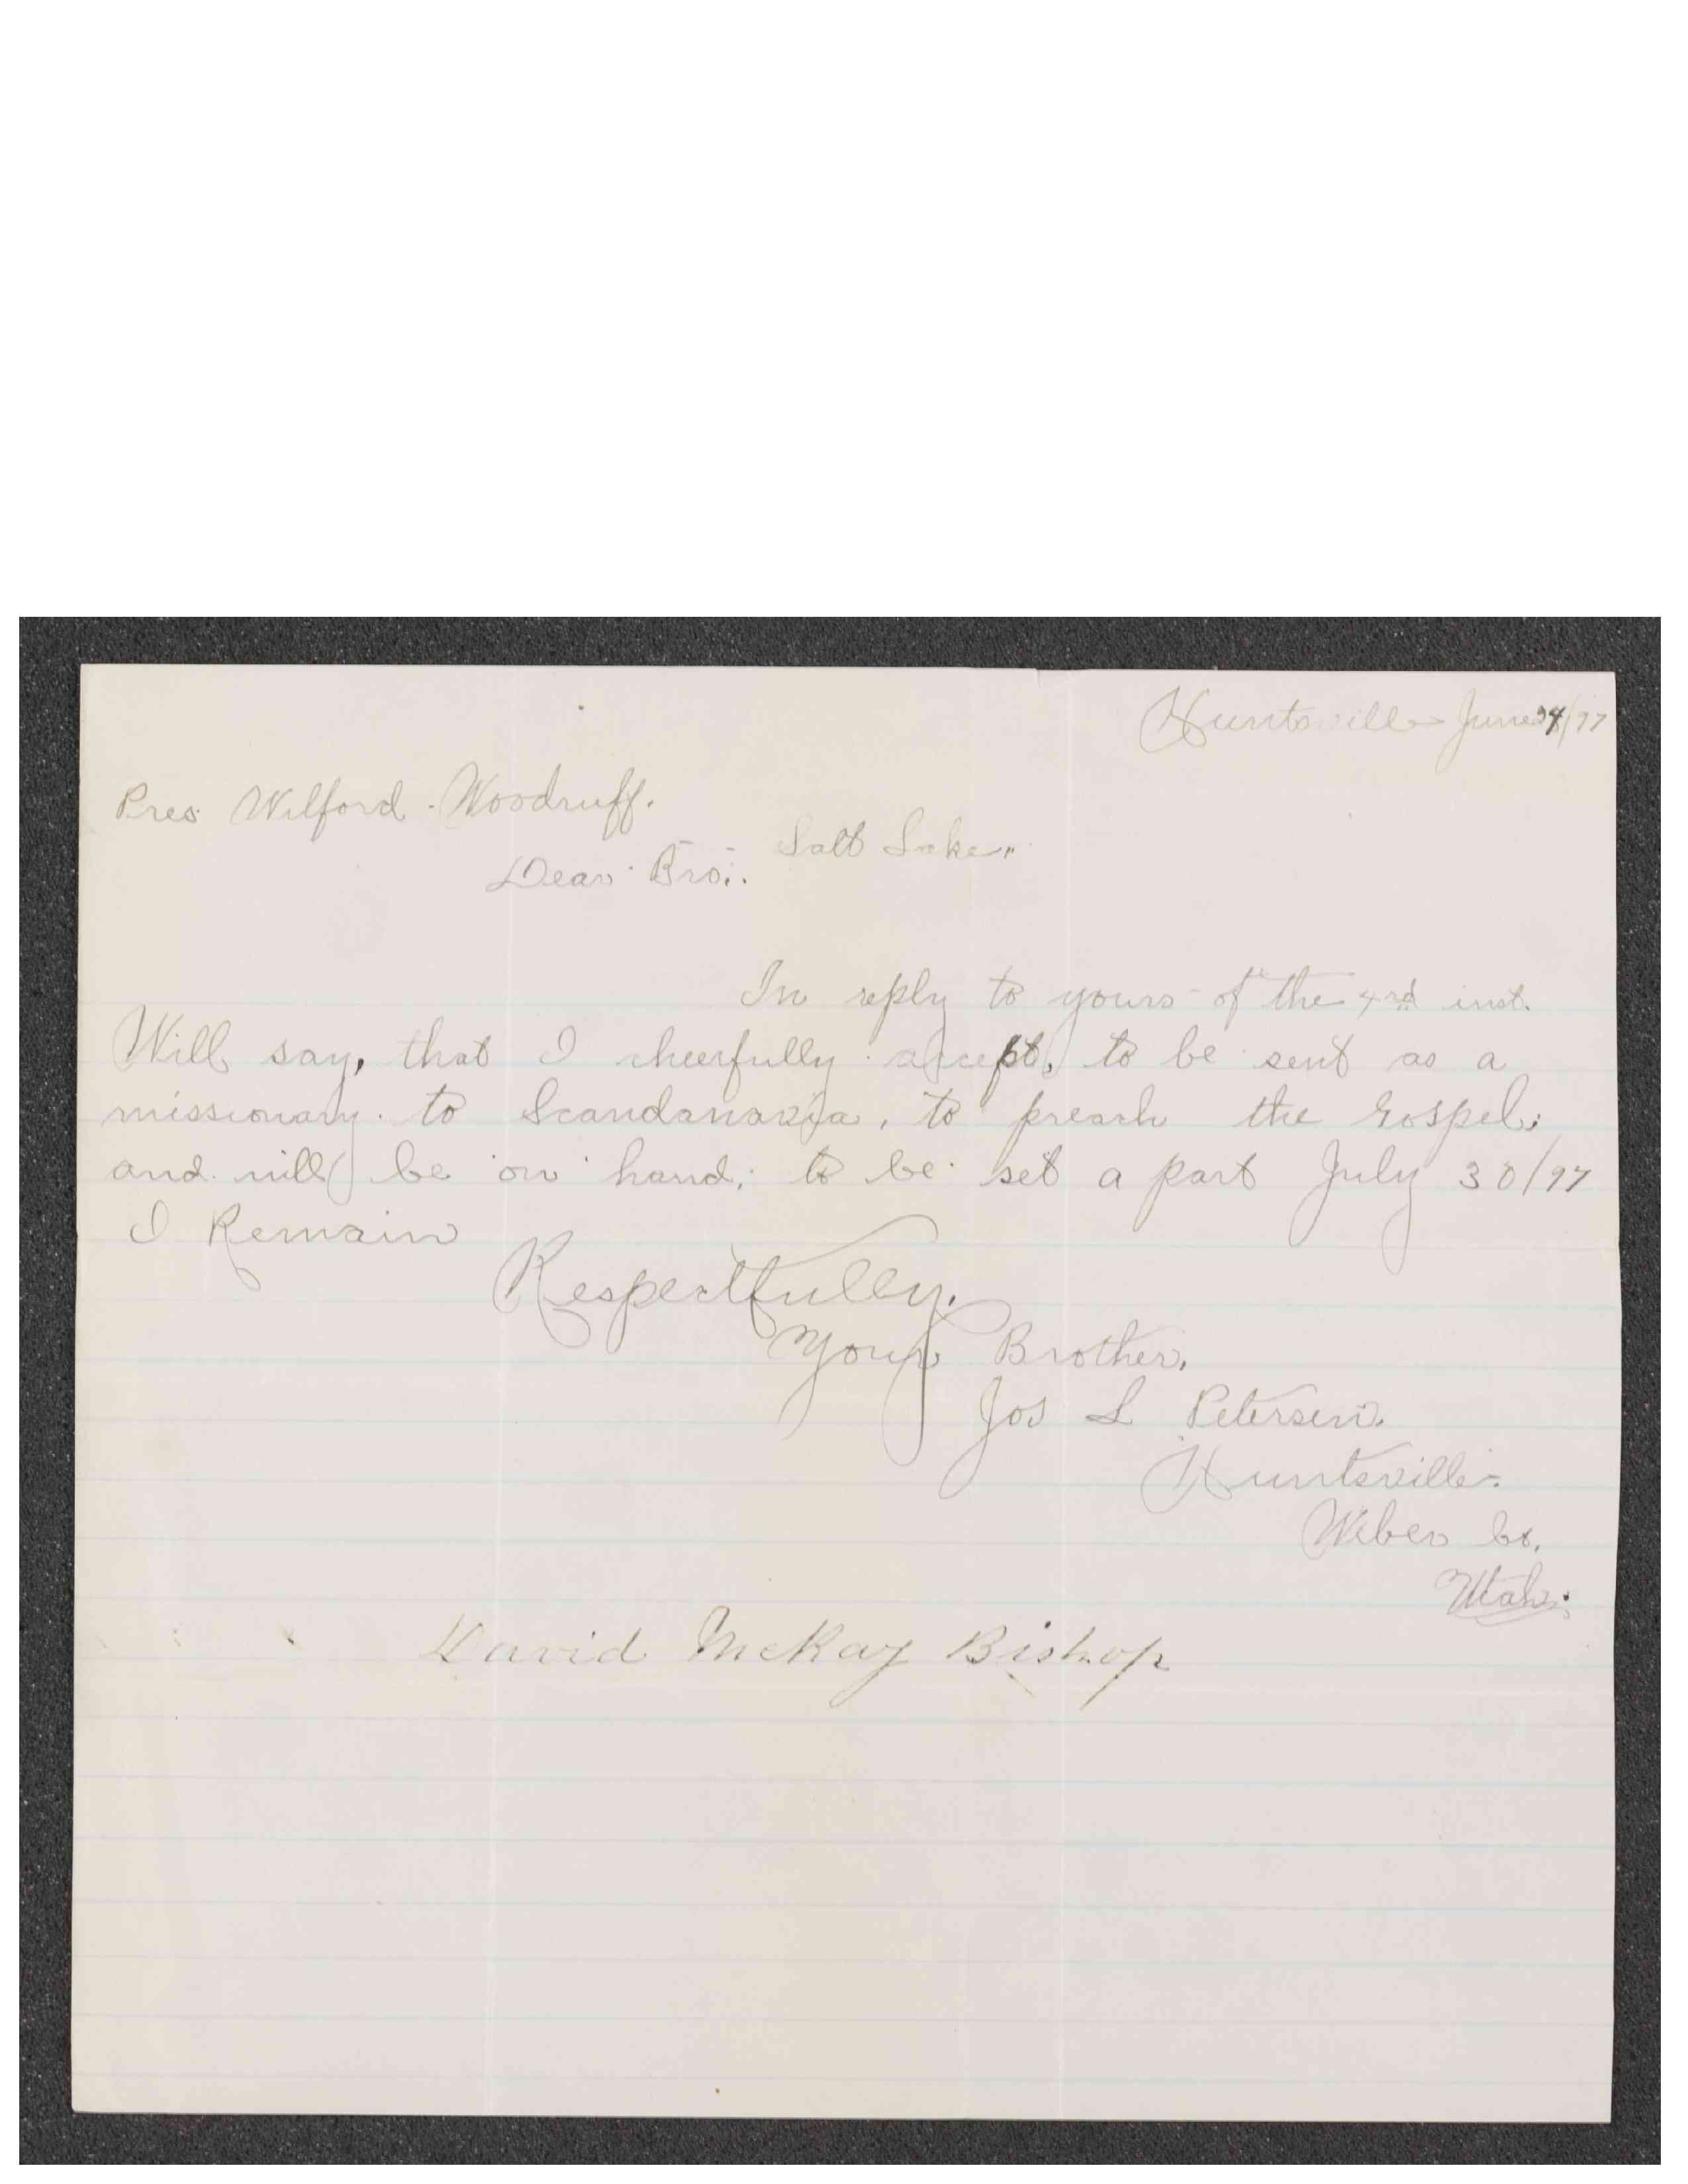 Huntsville June 24/97
Pres. Wilford Woodruff.
Salt Lake,,
Dear Bro:.
In reply to yours of the 4rd inst.
Will say, that I cheerfully accept, to be sent as a
missionary to Scandanavia, to preach the Gospel;
and will be on hand; to be set a part July 30/97
I Remain
Respectfully.
Your Brother,
Jos L Petersen.
Huntsville.
Weber Co.
Utah.
David McKay Bishop